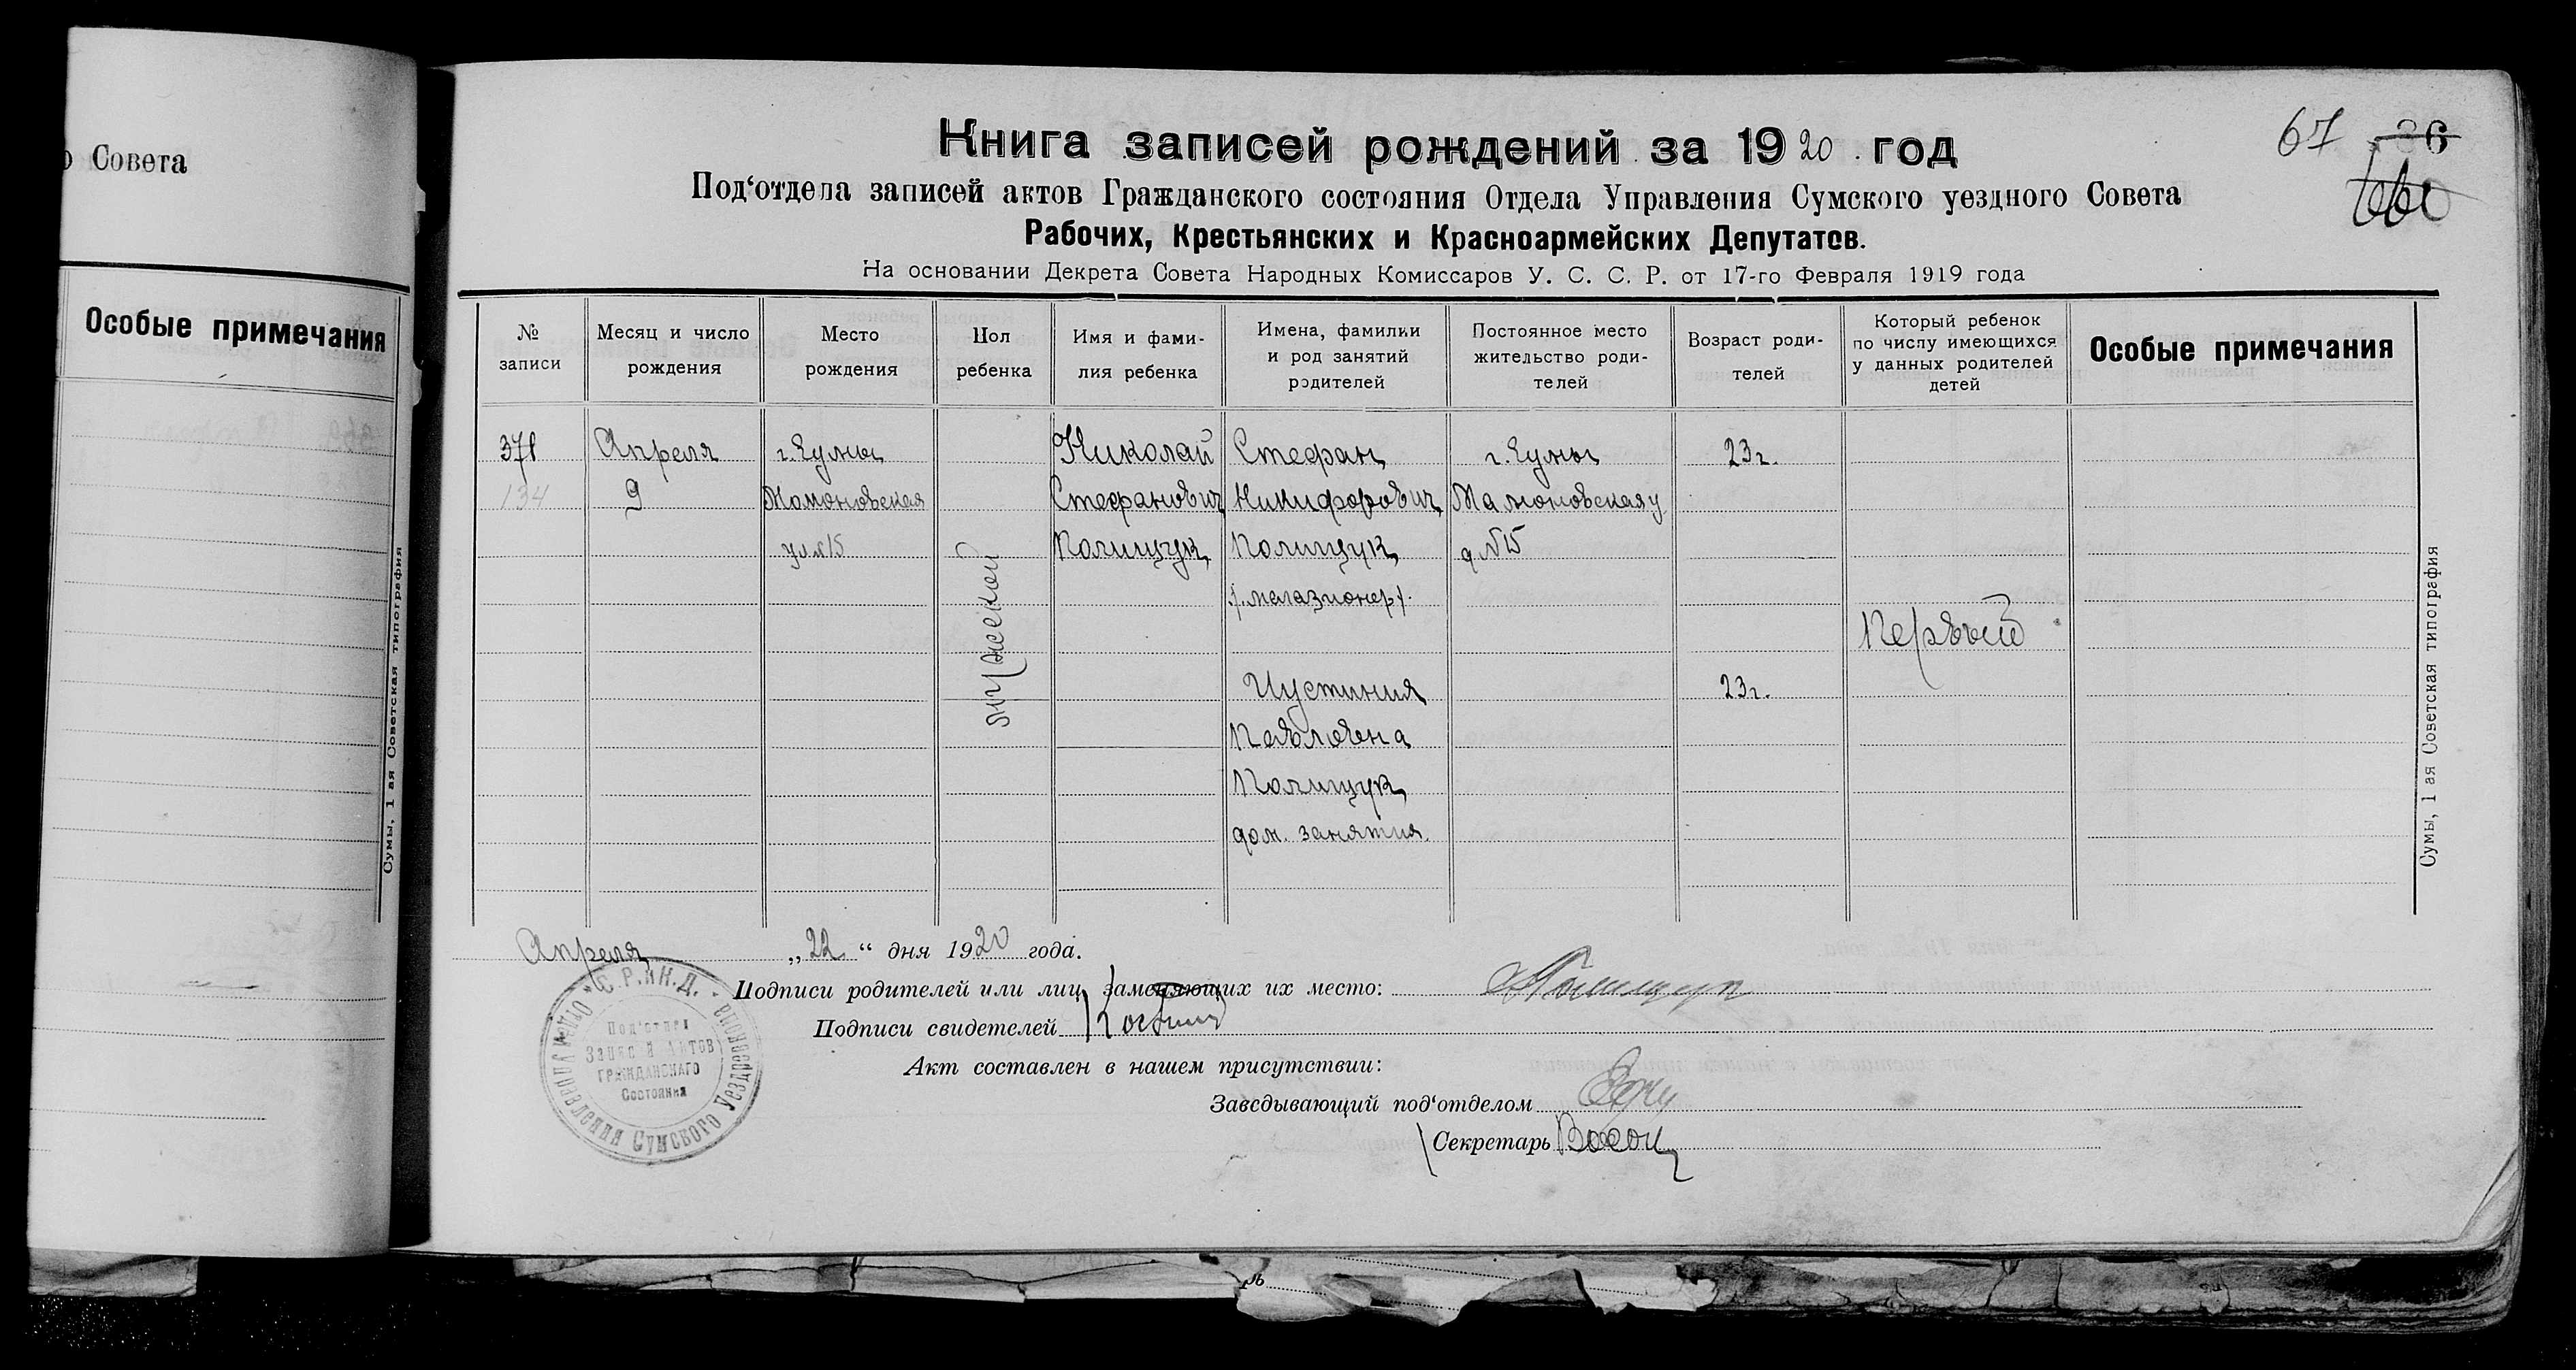 о Совета
Особые примечания
Сумы, 1 ая Советская типография
67
36
Книга записей рождений за 1920 год
Под‘отдела записей актов Гражданского состояния Отдела Управления Сумского уездного Совета
Рабочих, Крестьянских и Красноармейских Депутатов.
На основании Декрета Совета Народных Комиссаров У. С. С. Р. от 17-го Февраля 1919 года
№ записи
Месяц и число рождения
Место рождения
Пол ребенка
Имя и фами-
лия ребенка
Имена, фамилии
и род занятий
родителей
Постоянное место
жительство роди-
телей
Возраст роди-
телей
Который ребенок
по числу имеющихся
у данных родителей
детей
Особые примечания
371
134
Апреля
9
г. Сумы
Мамоновская
ул №15
мужской
Николай
Стефанович
Полищук
Стефан
Никифорович
Полищук
/магазионер/
Иустиния
Павловна
Полищук
дом. занятия.
г. Сумы
Мамоновская у
д №15
23 г.
23 г.
Первый
Сумы, 1 ая Советская типография
Апреля „22“ дня 1920 года.
Подписи родителей или лиц заменяющих их место: Полищук
Подписи свидетелей
Акт составлен в нашем присутствии:
Заведывающий под‘отделом
Секретарь
С.Р.и К.Д.
Отдел Управления Сумского Уездревкома
Под‘отдел
Записи Актов
Гражданскаго
Состояния